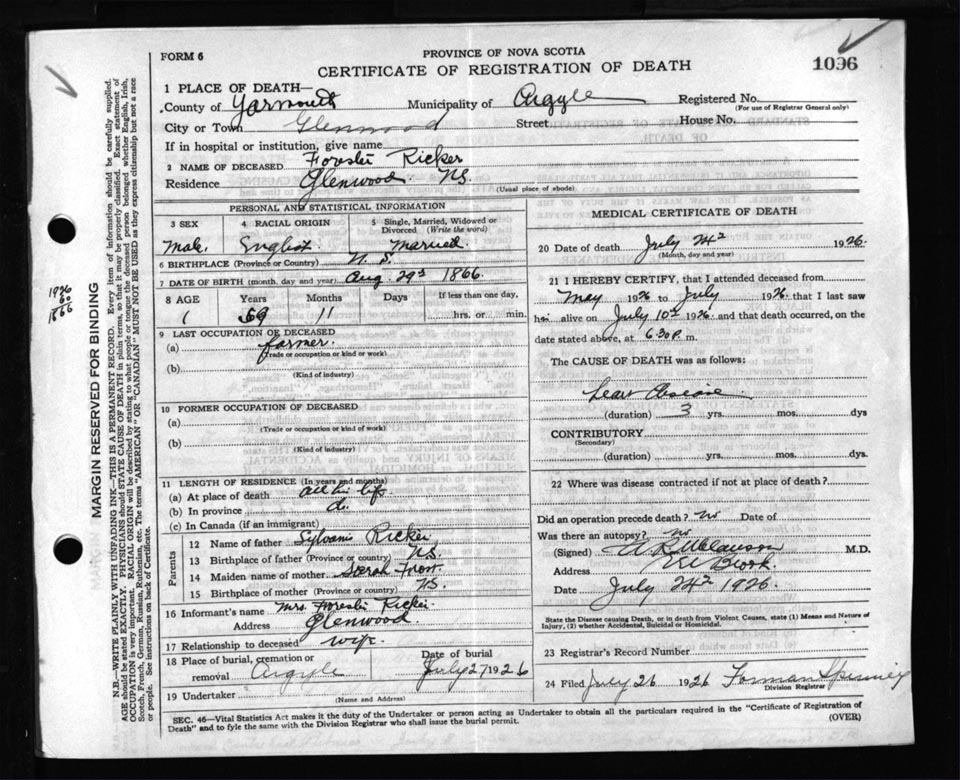 FORM 6
PROVINCE OF NOVA SCOTIA
CERTIFICATE OF REGISTRATION OF DEATH
1096
1 PLACE OF DEATH—
County of Yarmouth Municipality of Argyle Registered No.
(For use of Registrar General only)
City or Town Glenwood Street House No.
If in hospital or institution, give name
2 NAME OF DECEASED Forester Ricker
Residence Glenwood N.S.
(Usual place of abode)
PERSONAL AND STATISTICAL INFORMATION
3 SEX 4 RACIAL ORIGIN 5 Single, Married, Widowed or Divorced (Write the word)
Male. English. Married.
6 BIRTHPLACE (Province or Country) N.S.
7 DATE OF BIRTH (month, day and year) Aug. 29 1866.
8 AGE Years Months Days If less than one day,
59 11 hrs. or min.
9 LAST OCCUPATION OF DECEASED
(a) farmer.
(Trade or occupation or kind or work)
(b)
(Kind of industry)
10 FORMER OCCUPATION OF DECEASED
(a)
(Trade or occupation or kind of work)
(b)
(Kind of industry)
11 LENGTH OF RESIDENCE (In years and months)
(a) At place of death all his life
(b) In province do.
(c) In Canada (if an immigrant)
Parents
12 Name of father Sylvanis Ricker
13 Birthplace of father (Province or country) N.S.
14 Maiden name of mother Sarah Frost
15 Birthplace of mother (Province or country) N.S.
16 Informant's name Mrs. Forester Ricker
Address Glenwood
17 Relationship to deceased wife
18 Place of burial, cremation or removal Argyle Date of burial July 27 1926
19 Undertaker
(Name and Address)
MEDICAL CERTIFICATE OF DEATH
20 Date of death July 24 1926.
(Month, day and year)
21 I HEREBY CERTIFY, that I attended deceased from
May 1926 to July 1926 that I last saw
him alive on July 10th 1926 and that death occurred, on the
date stated above, at 6.30 P. m.
The CAUSE OF DEATH was as follows:
heart disease
(duration) 3 yrs. mos. dys
CONTRIBUTORY
(Secondary)
(duration) yrs. mos. dys.
22 Where was disease contracted if not at place of death?
Did an operation precede death? no Date of
Was there an autopsy? no
(Signed) M.D.
Address
Date July 24 1926.
State the Disease causing Death, or in death from Violent Causes, state (1) Means and Nature of Injury, (2) whether Accidental, Suicidal or Homicidal.
23 Registrar's Record Number
24 Filed July 26 1926 Forman Spinney
Division Registrar
SEC. 46—Vital Statistics Act makes it the duty of the Undertaker or person acting as Undertaker to obtain all the particulars required in the "Certificate of Registration of
Death" and to fyle the same with the Division Registrar who shall issue the burial permit. (OVER)
MARGIN RESERVED FOR BINDING
N.B.—WRITE PLAINLY WITH UNFADING INK—THIS IS A PERMANENT RECORD. Every item of information should be carefully supplied.
AGE should be stated EXACTLY. PHYSICIANS should STATE CAUSE OF DEATH in plain terms, so that it may be properly classified. Exact statement of
OCCUPATION is very important. RACIAL ORIGIN will be described by stating to what people or tongue the deceased person belonged whether English, Irish,
Scotch, French, German, Russian, Ruthenian, etc. The terms "AMERICAN" OR "CANADIAN" MUST NOT BE USED as they express citizenship but not a race
or people. See instructions on back of Certificate.
1926
60
1866